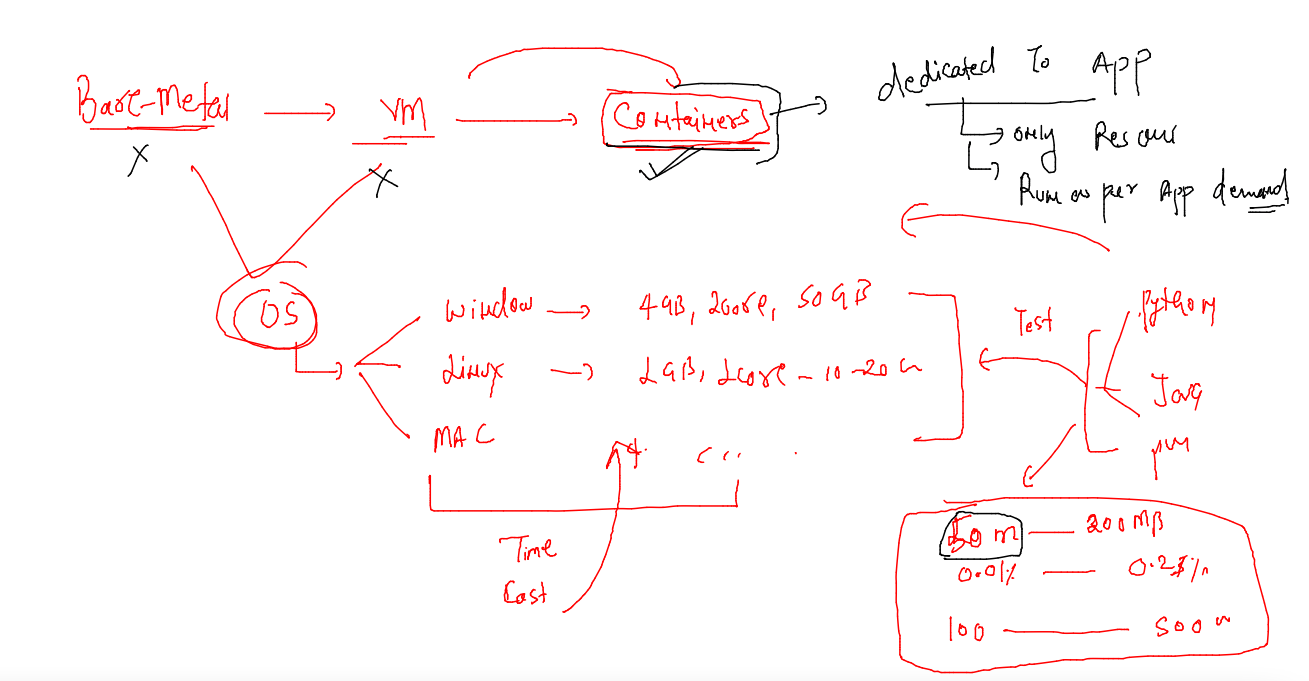 Bare-Metal → VM → Containers → dedicated To App
X X
→ only Resour
→ Run as per App demand
OS
Window → 4GB, 2core, 50GB
Linux → 2GB, 2core - 10-20
MAC
Test
Python
Java
Time
Cost
50m — 200MB
0.01% — 0.25%
100 — 500m